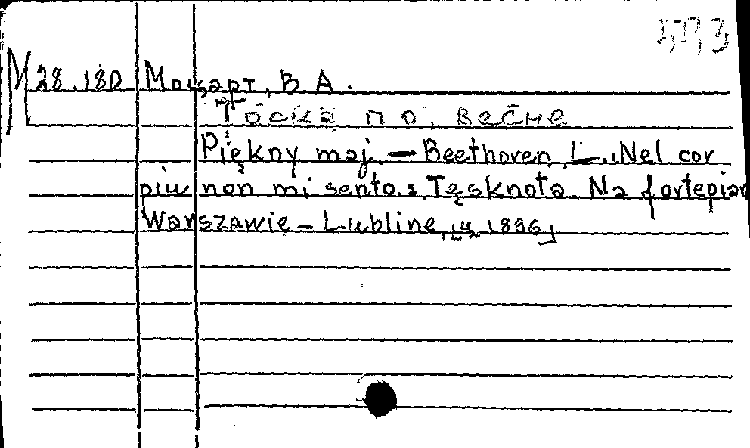 593
М 28.180 Моцарт, В А.
Тоска по весне
Piękny maj. — Beethoven L. Nel cor
piu non mi sento. Tęsknota. Na fortepian
Warszawie - Lubline, [4 1896]